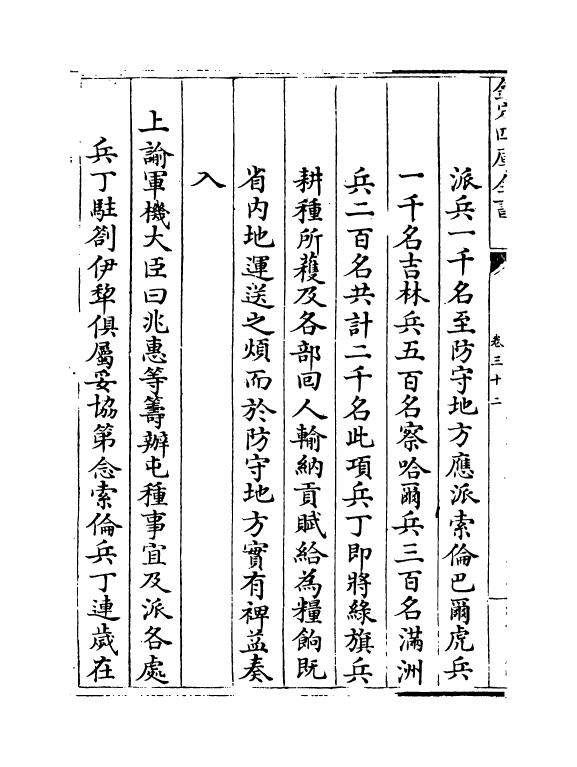 欽定四庫全書
卷三十二
派兵一千名至防守地方應派索倫巴爾虎兵
一千名吉林兵五百名察哈爾兵三百名滿洲
兵二百名共計二千名此項兵丁即將綠旗兵
耕種所穫及各部回人輸納貢賦給為糧餉既
省內地運送之煩而於防守地方實有裨益奏
入
上諭軍機大臣曰兆惠等籌辦屯種事宜及派各處
兵丁駐劄伊犂俱屬妥協第念索倫兵丁連歲在